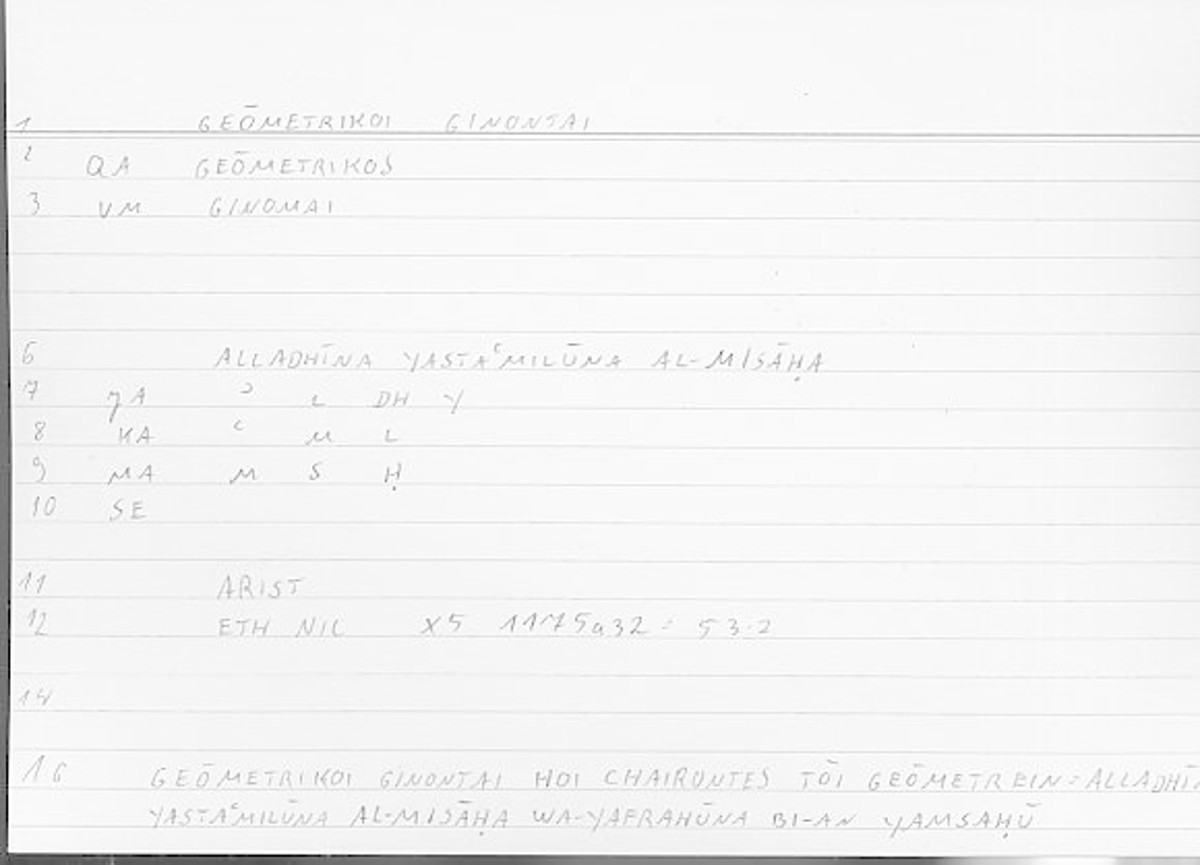 1 GEŌMETRIKOI GINONTAI
2 QA GEŌMETRIKOS
3 VM GINOMAI
6 ALLADHĪNA YASTAʿMILŪNA AL-MISĀḤA
7 JA ʾ L DH Y
8 KA ʿ M L
9 MA M S Ḥ
10 SE
11 ARIST
12 ETH NIC X5 1175a32 = 53.2
14
16 GEŌMETRIKOI GINONTAI HOI CHAIRONTES TŌI GEŌMETREIN = ALLADHĪ
YASTAʿMILŪNA AL-MISĀḤA WA-YAFRAHŪNA BI-AN YAMSAḤŪ